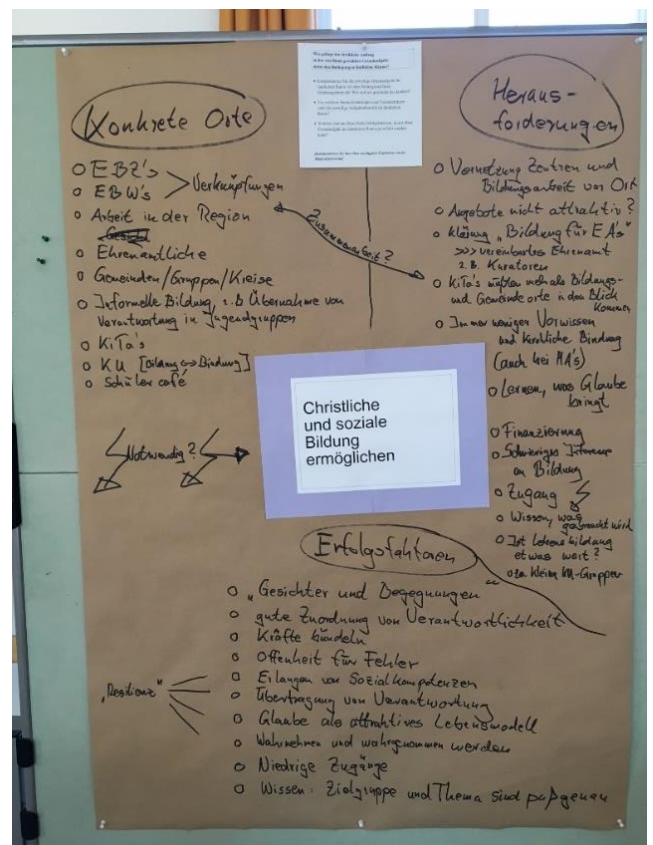 Konkrete Orte
EBZ's
EBW's
> Verknüpfungen
Arbeit in der Region
Ehrenamtliche
Gemeinden/Gruppen/Kreise
Informelle Bildung, z.B Übernahme von
Verantwortung in Jugendgruppen
KiTa's
KU [Bildung <-> Bindung]
Schüler café
Notwendig?
Zusammenarbeit?
Heraus-
forderungen
Vernetzung Zentren und
Bildungsarbeit vor Ort
Angebote nicht attraktiv?
Klärung "Bildung für EA's"
>>> vereinbartes Ehrenamt
z.B. Kuratoren
KiTa's müßten mehr als Bildungs-
und Gemeindeorte in den Blick
kommen
Immer weniger Vorwissen
und kirchliche Bindung
(auch bei MA's)
Lernen, was Glaube
bringt
Finanzierung
Schwieriges
an Bildung
Zugang
Wissen, was
gebraucht wird
Ist
etwas weit?
zu kleine KU-Gruppen
Christliche
und soziale
Bildung
ermöglichen
Erfolgsfaktoren
"Gesichter und Begegnungen"
gute Zuordnung von Verantwortlichkeit
Kräfte bündeln
Offenheit für Fehler
Erlangen von Sozialkompetenzen
"Resilienz"
Übertragung von Verantwortung
Glaube als attraktives Lebensmodell
Wahrnehmen und wahrgenommen werden
Niedrige Zugänge
Wissen: Zielgruppe und Thema sind paßgenau